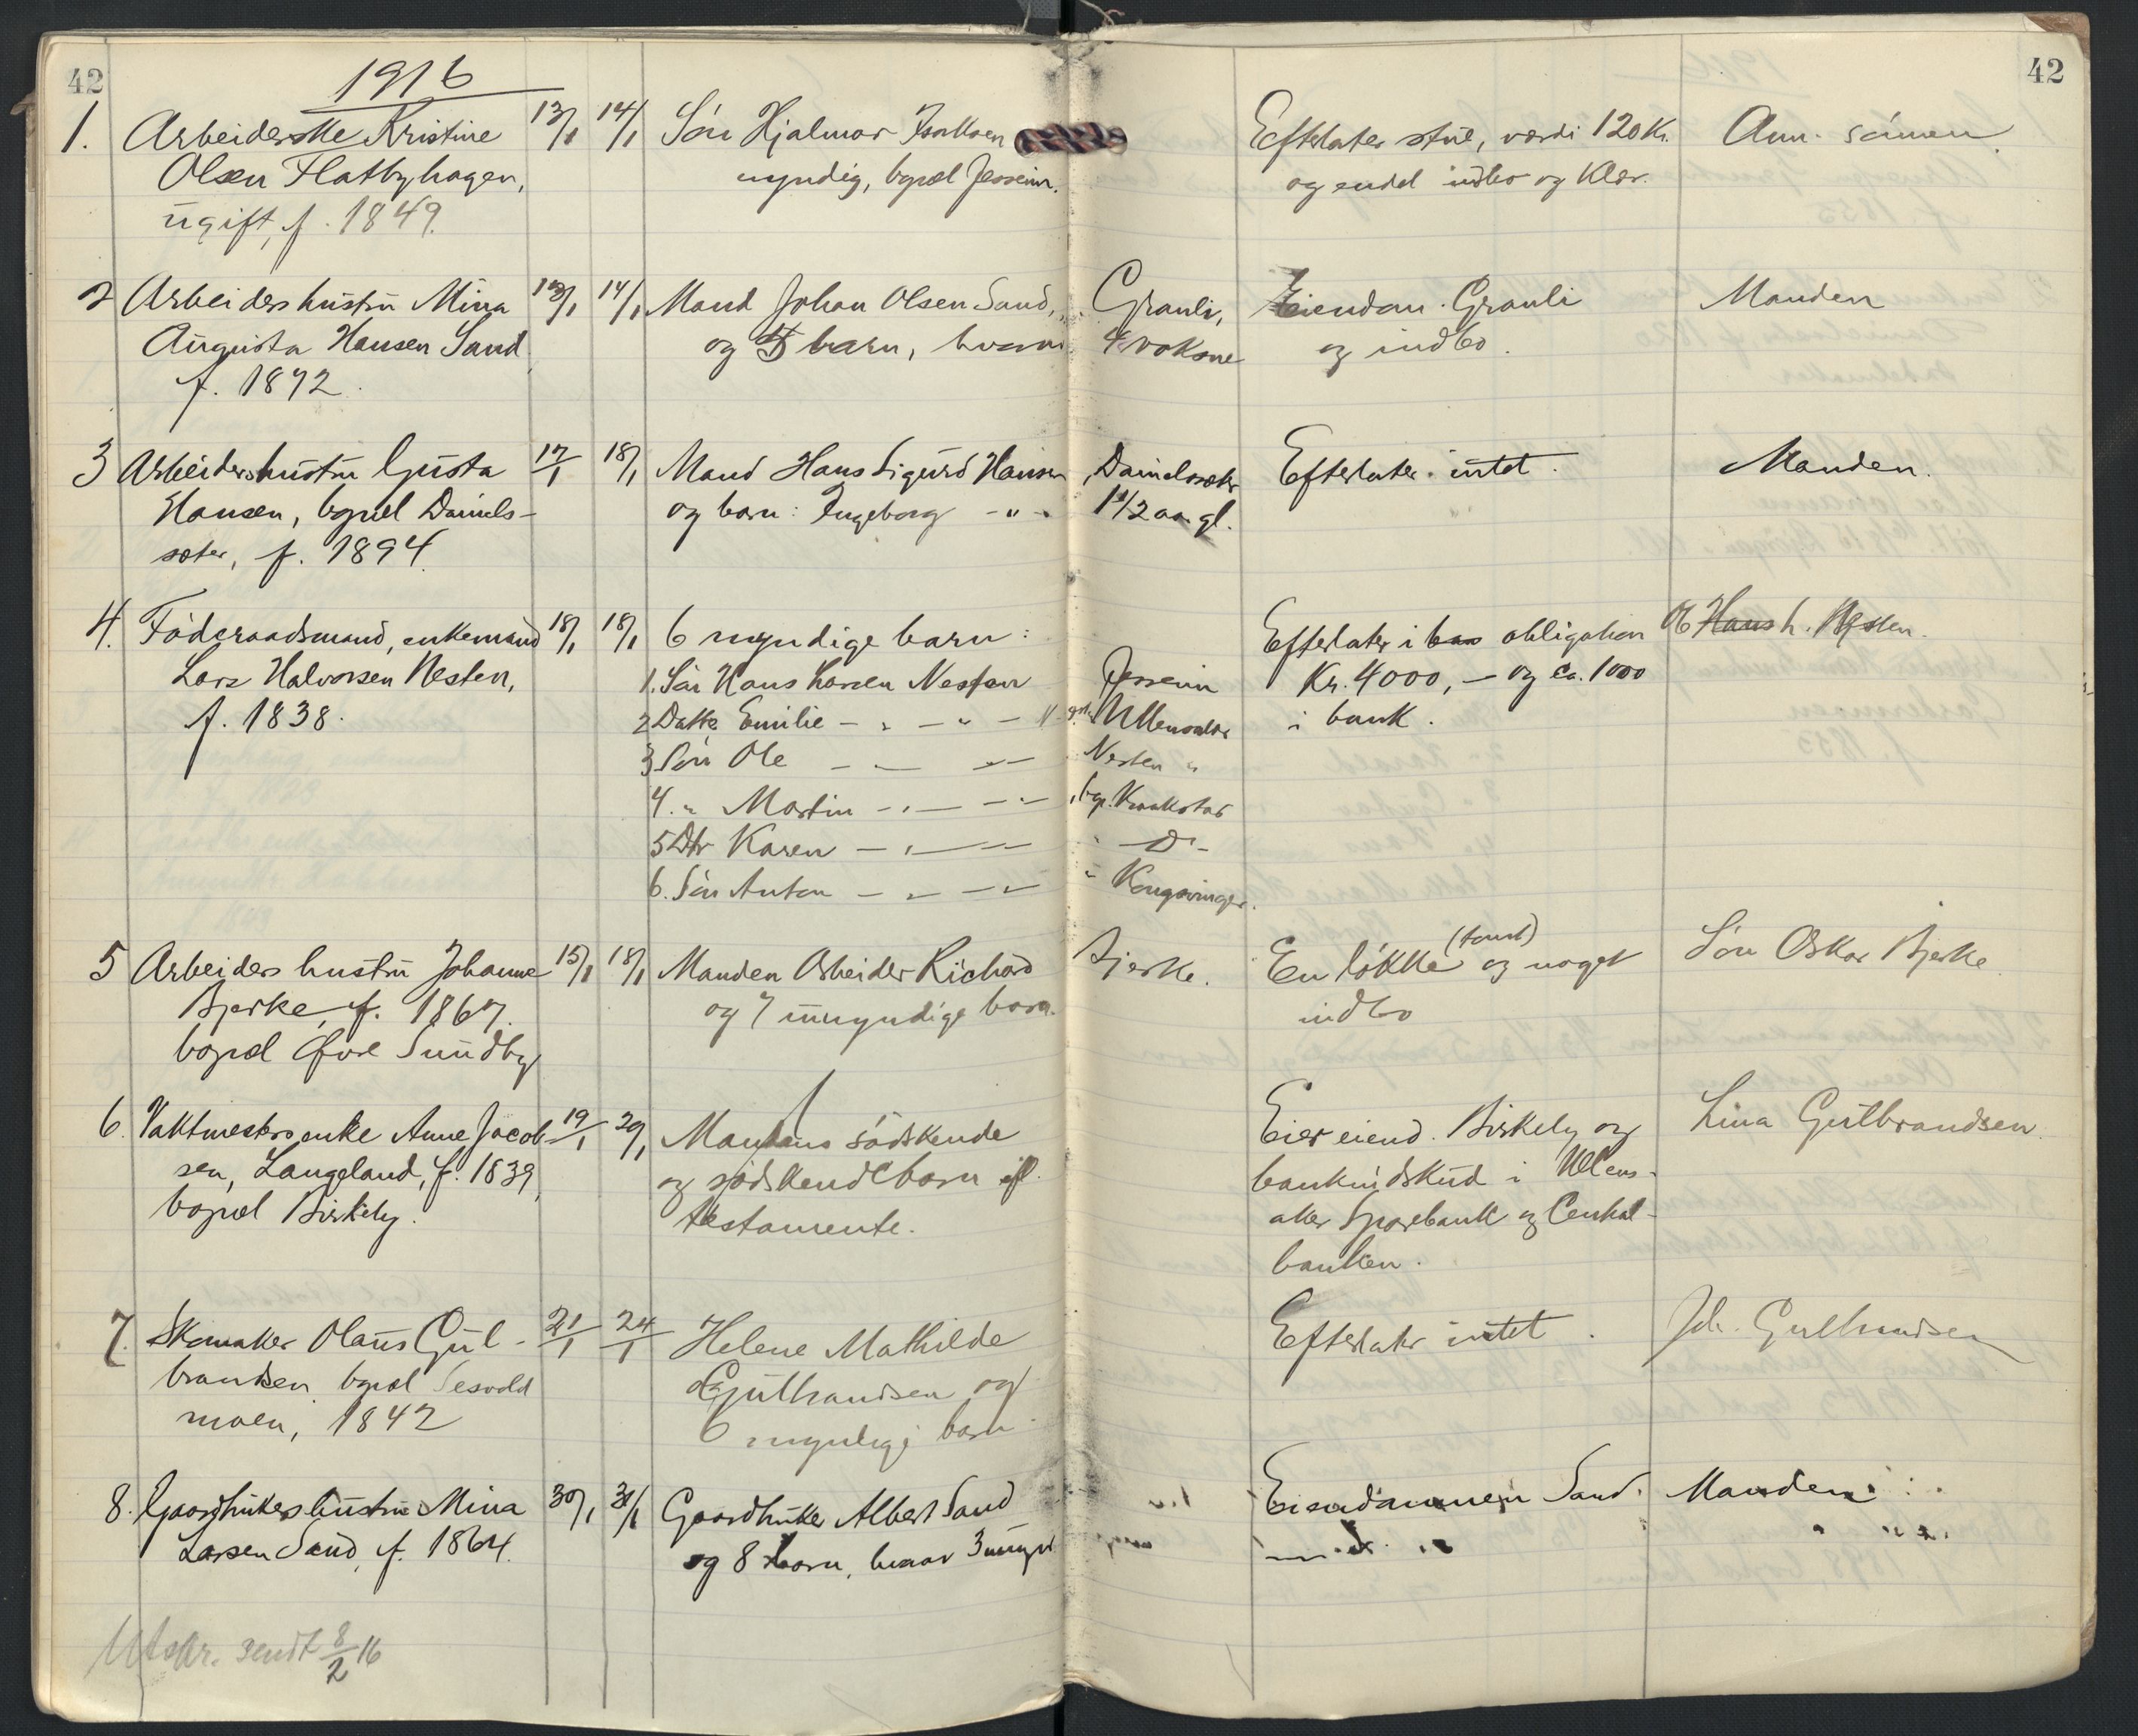 42
1916
42
1. Arbeiderske Kristine 13/1 14/1 Søn Hjalmar Isaksen Efterlater stue, værdi 120 Kr. Anm. sønnen.
Olsen Flatbyhagen, myndig, bopæl Jessheim. og endel indbo og Klær.
ugift, f. 1849.
2 Arbeiders hustru Mina 13/1 14/1 Mand Johan Olsen Sand, Granli, Eiendom. Granli Manden
Augusta Hansen Sand og 5 barn, hvorav 4 voksne og indbo.
f. 1872.
3 Arbeidershustru Gusta 17/1 18/1 Mand Hans Sigurd Hansen, Danielsæter Efterlater intet. Manden.
Hansen, bopæl Daniels- og barn: Ingeborg -"- 1 1/2 aar gl.
sæter, f. 1894.
4. Föderaadsmand, enkemand 18/1 18/1 6 myndige barn: Efterlater i obligation Ole Hans L. Nesten.
Lars Halvorsen Nesten, 1. Søn Hans Larsen Nesten Jessheim Kr. 4000,- og ca. 1000
f. 1838. 2 Datter Emilie - " - " - Ullensaker i bank.
3 Søn Ole - " - " - Nesten "
4. " Martin - " - " - , bop. Kraakstad
5 Dtr Karen - " - " - D° -
6. Søn Anton - " - " - " Kongsvinger.
5 Arbeiders hustru Johanne 15/1 18/1 Manden Arbeider Richard Bjerke. En løkke (tomt) og noget Søn Oskar Bjerke
Bjerke, f. 1867. og 7 umyndige barn. indbo
bopæl Øvre Sundby
6. Vaktmesters enke Anne Jacob- 19/1 20/1 Mandens sødskende Eier eiend. Birkely og Lina Gulbrandsen.
sen, Langeland, f. 1839, og sødskendebarn ifl. bankindskud i Ullens-
bopæl Birkely. testamente. aker Sparebank og Central-
banken.
7. Skomaker Olaus Gul- 21/1 24/1 Helene Mathilde Efterlater intet. Joh. Gulbrandsen
brandsen bopæl Gulbrandsen og
moen, 1842 6 myndige barn
8. Gaardbrukers hustru Mina 30/1 31/1 Gaardbruker Albert Sand Eiendommen Sand. Manden
Larsen Sand, f. 1864. og 8 barn, hvorav 3 umynd.
Utskr. sendt 8/2 16